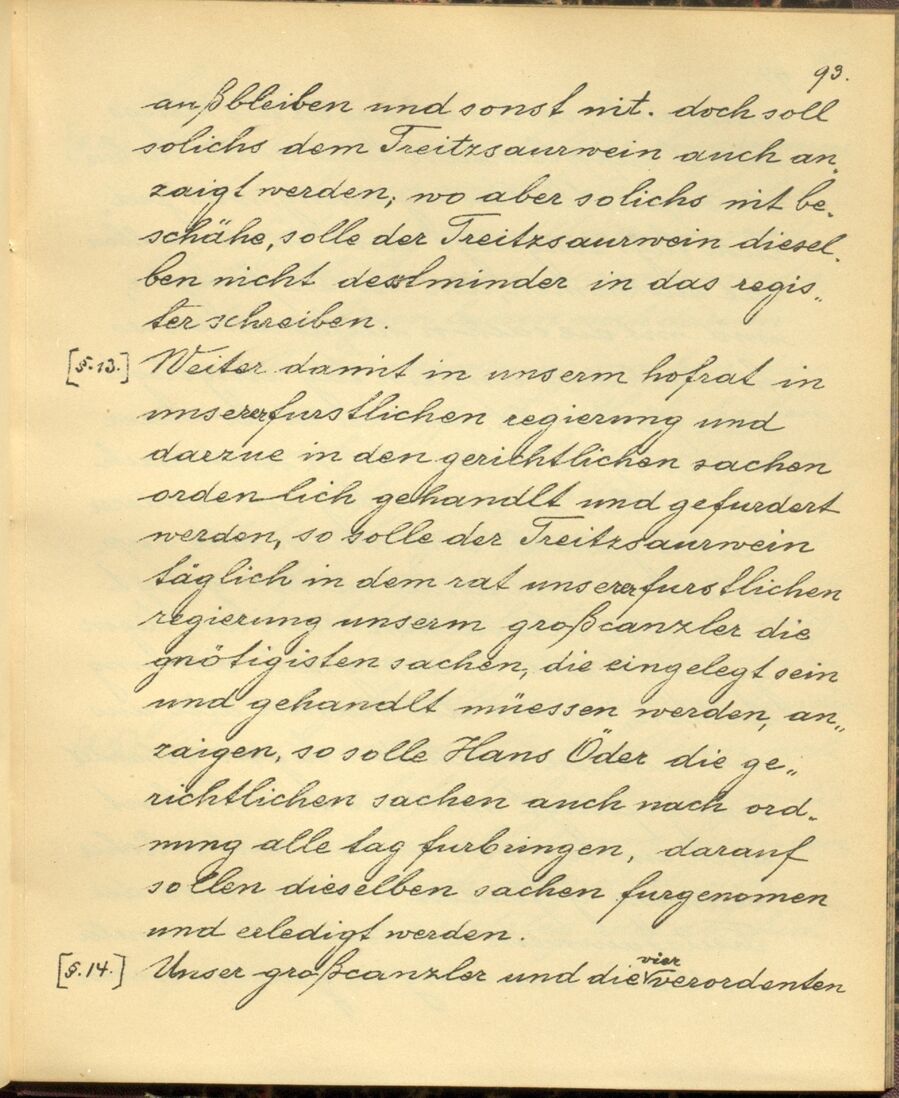 93.
außbleiben und sonst nit. doch soll
solichs dem Treitzsaurwein auch an„
zaigt werden, wo aber solichs nit be„
schähe, solle der Treitzsaurwein diesel„
ben nicht destminder in das regis„
ter schreiben.
[§. 13.] Weiter damit in unserm hofrat in
unserer furstlichen regierung und
darzue in den gerichtlichen sachen
ordenlich gehandlt und gefurdert
werden, so solle der Treitzsaurwein
täglich in dem rat unserer furstlichen
regierung unserm großcanzler die
gnötigisten sachen, die eingelegt sein
und gehandlt müessen werden, an„
zaigen, so solle Hans Öder die ge„
richtlichen sachen auch nach ord„
nung alle tag furbringen, darauf
sollen dieselben sachen furgenomen
und erledigt werden.
[§. 14.] Unser großcanzler und die vier verordenten